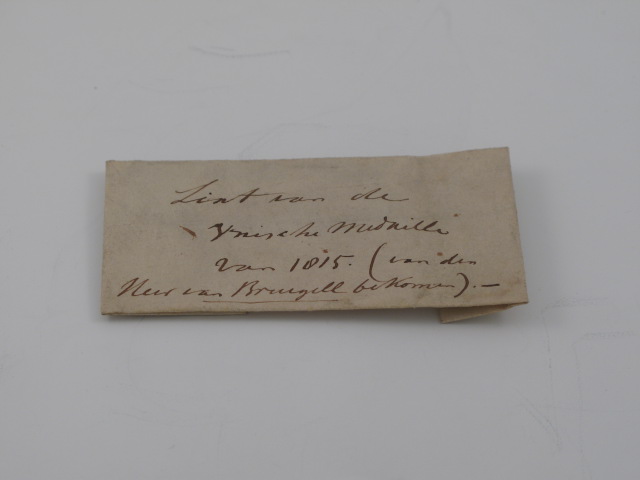 Lint van de
Ynische Medaille
van 1815. (van den
Heer van Bruegell bekomen). —